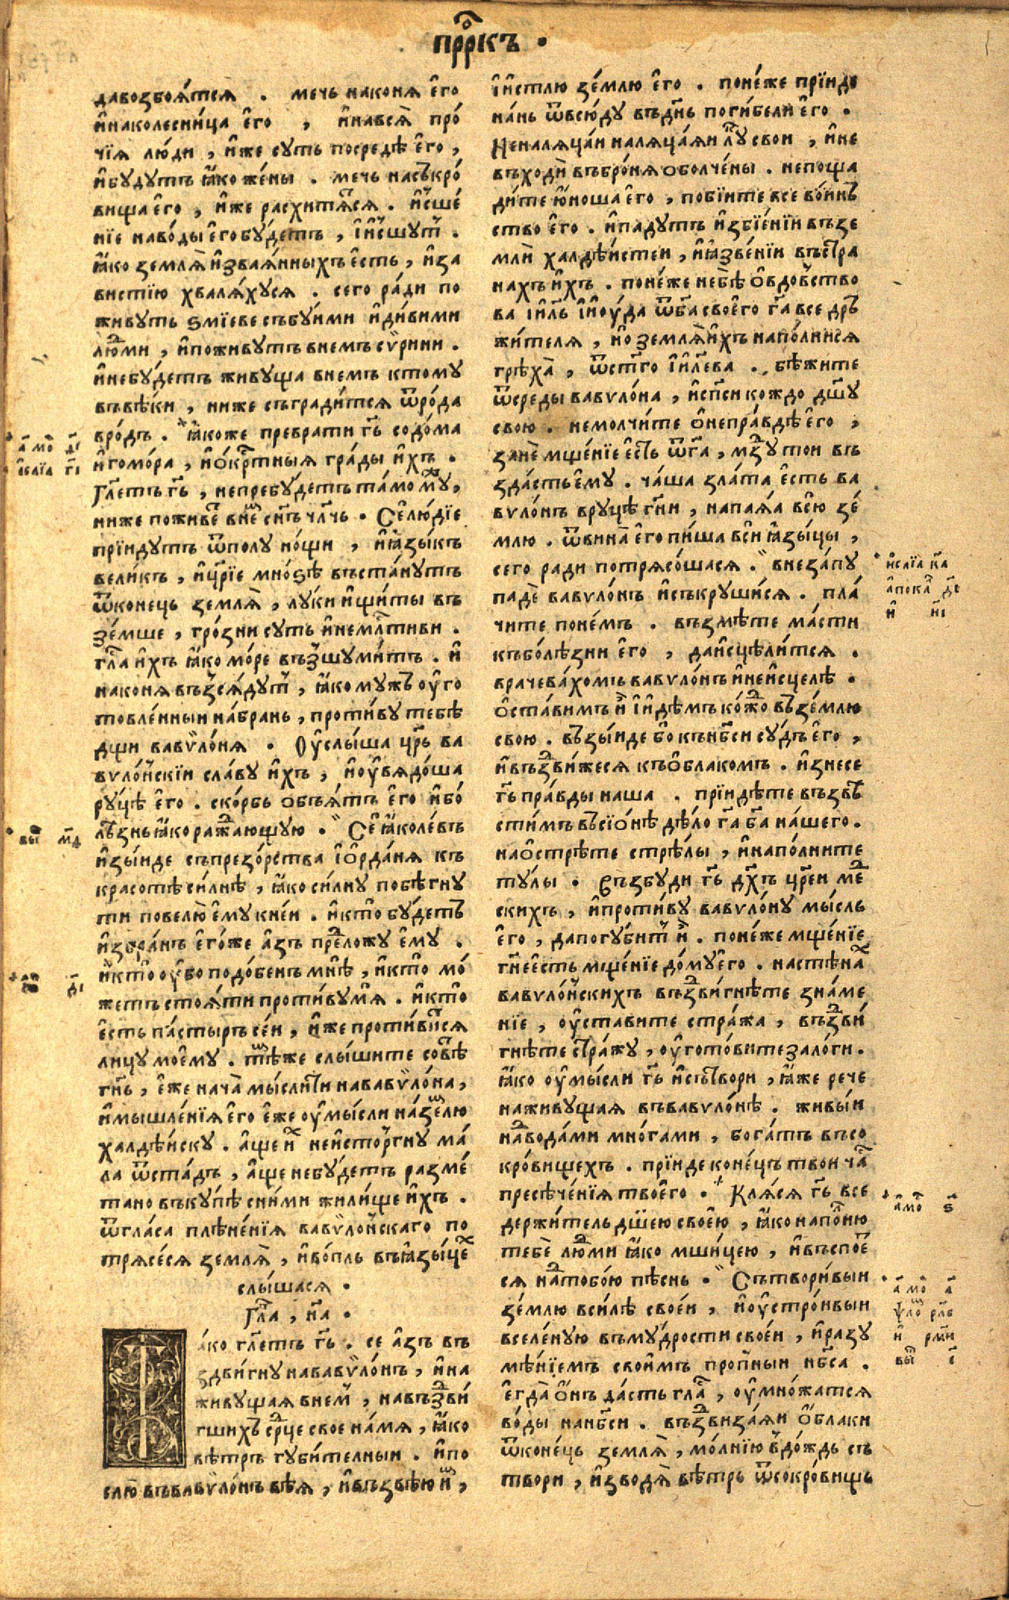 прⷪ҇ркъ .
давозбоѧ́тсѧ . мечь наконѧ̀ є҆го
и҆наколесни́ца є҆го , и҆навсѧ̀ про́
чїѧ лю́ди , и҆же суть посредѣ̀ є҆го ,
и҆бу́дутъ ꙗ҆́ко же́ны . мечь насъкро́
вища є҆го , и҆же расхитѧ́тсѧ . и҆сше́
нїе наво́ды є҆го бу́детъ ,
ꙗ҆́ко землѧ̀ и҆зваѧ́нныхъ є҆сть , и҆за
вистїю хвалѧ́хусѧ . сего ра́ди по
живуть ѕмїеве събу́ими и҆ди́вими
лю́дми , и҆поживутъ внемъ сѵрини .
и҆небу́детъ живуща внемъ ктому
въвѣ́ки , ниже съгради́тсѧ ѿро́да
вро́дъ . ꙗ҆́коже преврати гь҇ содо́ма
и҆гомо́ра , и҆ѻ҆кр҇тныѧ гра́ды и҆́хъ .
гл҃етъ гь҇ , непребу́детъ та́мо му́ж ,
ниже поживе́т сн҃ъ чл҃чь . Се́ лю́дїе
прїи́дутъ ѿполу но́щи , и҆ꙗ҆зы́къ
вели́къ , и҆цр҃їе мно́ѕѣ въста́нутъ
ѿконе́ць землѧ̀ , лу́ки и҆щи́ты въ
зе́мше , гро́зни суть и҆немл҇тиви .
гла́с и҆́хъ ꙗ҆́ко мо́ре възшуми́тъ . и҆
наконѧ въсѧ́дут , ꙗ҆́ко мужъ ѹ҆го
товле́нныи на́брань , проти́ву тебѣ
дщи вавѷло́нѧ . Оу҆слы́ша цр҃ь ва
вѷло́нскїи сла́ву и҆́хъ , и҆ѹ҆вѧдо́ша
ру́цѣ є҆го . ско́рбь ѻ҆бьѧ́тъ є҆го и҆бо
лѣзнь ꙗ҆́ко ража́ющую . Се́ ꙗ҆́ко ле́въ
и҆зы́иде съпрезо́рства і҆ѻ҆рда́нѧ къ
красотѣ̀ си́лнѣ , ꙗ҆́ко си́лну побѣ́гну
ти повелю̀ є҆му кне́и . и҆кто̀ бу́детъ
и҆збра́нъ є҆го́же а҆зъ пре́дложу є҆му .
и҆кто̀ ѹ҆бо подо́бенъ мнѣ̀ , и҆кто̀ мо́
жетъ стоѧ́ти проти́ву мѧ̀ . и҆кто̀
є҆сть па́стырь се́и , и҆же проти́витсѧ
лицу моє҆му . тѣ́мже слы́шите совѣ́т
гн҇ь , є҆же нача̀ мы́слити нававѷло́на ,
и҆мышле́нїѧ є҆го є҆же ѹ҆мы́сли на́землю
халдѣ́йску . а҆ще и҆х неи҆сто́ргну ма́
ла ѿста́дъ , а҆ще небу́детъ разме́
тано въку́пѣ сни́ми жили́ще и҆́хъ .
ѿгла́са плѣне́нїѧ вавѷло́нскаго по
трѧсе́сѧ землѧ̀ , и҆во́пль въꙗ҆зы́цех
слы́шасѧ .
Гла , н҃а .
ꙗ҆́ко гл҃етъ гь҇ . се а҆зъ въ
здви́гну нававѷло́нъ , и҆на
живущаѧ внем , навъзви́
гшихъ ср҇це свое на́мѧ , ꙗ҆́ко
вѣтръ губи́телныи . и҆по
слю̀ въвавѷло́нъ вѣ́ѧ , и҆възвѣ́ю и҆̀ ,
и҆и҆стлю зе́млю є҆го . поне́же прїи́де
на́нь ѿвсю́ду въдн҃ь поги́бели є҆го .
Неналѧца́и налѧца́ѧи лу́к свои , и҆не
въходи въбро́нѧ ѻ҆болче́ны . непоща
ди́те ю҆ноша є҆го , поби́ите все во́инъ
ство є҆го . и҆паду́тъ и҆збїе́нїи възе
мли халдѣ́истеи , и҆ꙗ҆зве́нїи въстра
нахъ и҆хъ . поне́же небѣ̀ ѻ҆вдо́вство
ва і҆и҃ль и҆і҆ѹ҆́да ѿб҃а своє҆го га҇ все дръ
жи́телѧ , но землѧ̀ и҆́хъ напо́лнисѧ
грѣха̀ , ѿст҃го і҆и҃лева . бѣжи́те
ѿсреды̀ вавѷло́на , и҆сп҃си ко́ждо дш҃у
свою . немолчи́те ѻ҆непра́вдѣ є҆го ,
занѐ мще́нїе є҆сть ѿга҇ , мзду то́и въ
зда́сть є҆му . ча́ша зла́та є҆сть ва
вѷло́нъ вруцѣ̀ гн҇и , напаѧ́ѧ всю̀ зе́
млю . ѿвина̀ є҆го пи́ша вси ꙗ҆зы́цы ,
сего ра́ди потрѧсо́шасѧ . внеза́пу
падѐ вавѷло́нъ и҆съкруши́сѧ . пла́
чите поне́мъ . възмѣте ма́сти
къболѣ́зни є҆го , даи҆сцѣли́тсѧ .
врачева́хомъ вавѷло́нъ и҆неи҆сцелѣ̀ .
ѻ҆ста́вимъ и҆̀ и҆и҆дѣ́мъ ко́ждо въземлю
свою . възы́иде бо кънб҃си су́дъ є҆го ,
и҆възви́жесѧ къѻ҆́блакомъ . и҆знесе
гь҇ пра́вды наша . прїидѣ́те възвѣ
сти́мъ въсїѻ́нѣ дѣ́ло га҇ ба҃ на́шего .
наѻ҆стри́те стрѣ́лы , и҆напо́лните
ту́лы . възбуди гь҇ дх҃ъ цр҃еи ме́д
скихъ , и҆проти́ву вавѷло́ну мы́сль
є҆го , дапогу́бит и҆̀ . поне́же мще́нїе
гн҇е є҆сть мще́нїе до́му є҆го . настѣна́х
вавѷло́нскихъ възви́гнѣте зна́ме
нїе , ѹ҆ста́вите стра́жа , възви́
гнѣте стра́жу , ѹ҆гото́вите зало́ги .
ꙗ҆́ко ѹ҆мы́сли гь҇ и҆сътвори , ꙗ҆́же рече
наживущаѧ въвавѷло́нѣ . живы́и
надвода́ми мно́гами , бога́тъ въсо
кро́вищехъ . прїи́де коне́цъ твои ча́с
пресѣче́нїѧ твоє҆го . Клѧсѧ гь҇ все
держи́тель дш҃ею своє҆ю , ꙗ҆́ко напо́лню
тебѐ лю́дми ꙗ҆́ко мши́цею , и҆въспое́т
сѧ надтобо́ю пѣ́снь . Сътвори́выи
зе́млю вси́лѣ свое́и , и҆ѹ҆стро́ивыи
вселе́ную въму́дрости свое́и , и҆разу
мѣ́нїемъ свои́мъ пропѧ́ныи нб҃са .
є҆гда̀ ѻ҆́нъ да́сть гла́с , ѹ҆мно́жатсѧ
во́ды нанб҃си . възвиза́ѧи ѻ҆́блаки
ѿконе́ць землѧ̀ , мо́лнїю вдо́ждь съ
твори , и҆зводѧ̀ вѣ́трь ѿсокро́вищь
а҆мо҇ д҃і
и҆са́їа г҃і
вы҇т м҃д
д҃і
и҆са́їа к҃а
а҆пока҇л д҃і
и҆ и҃і
а҆мо҇ ѕ҃
а҆мо҇ а҃
ѱло҇ рл҃е
и҆ рм҃и
вы҇т і҃